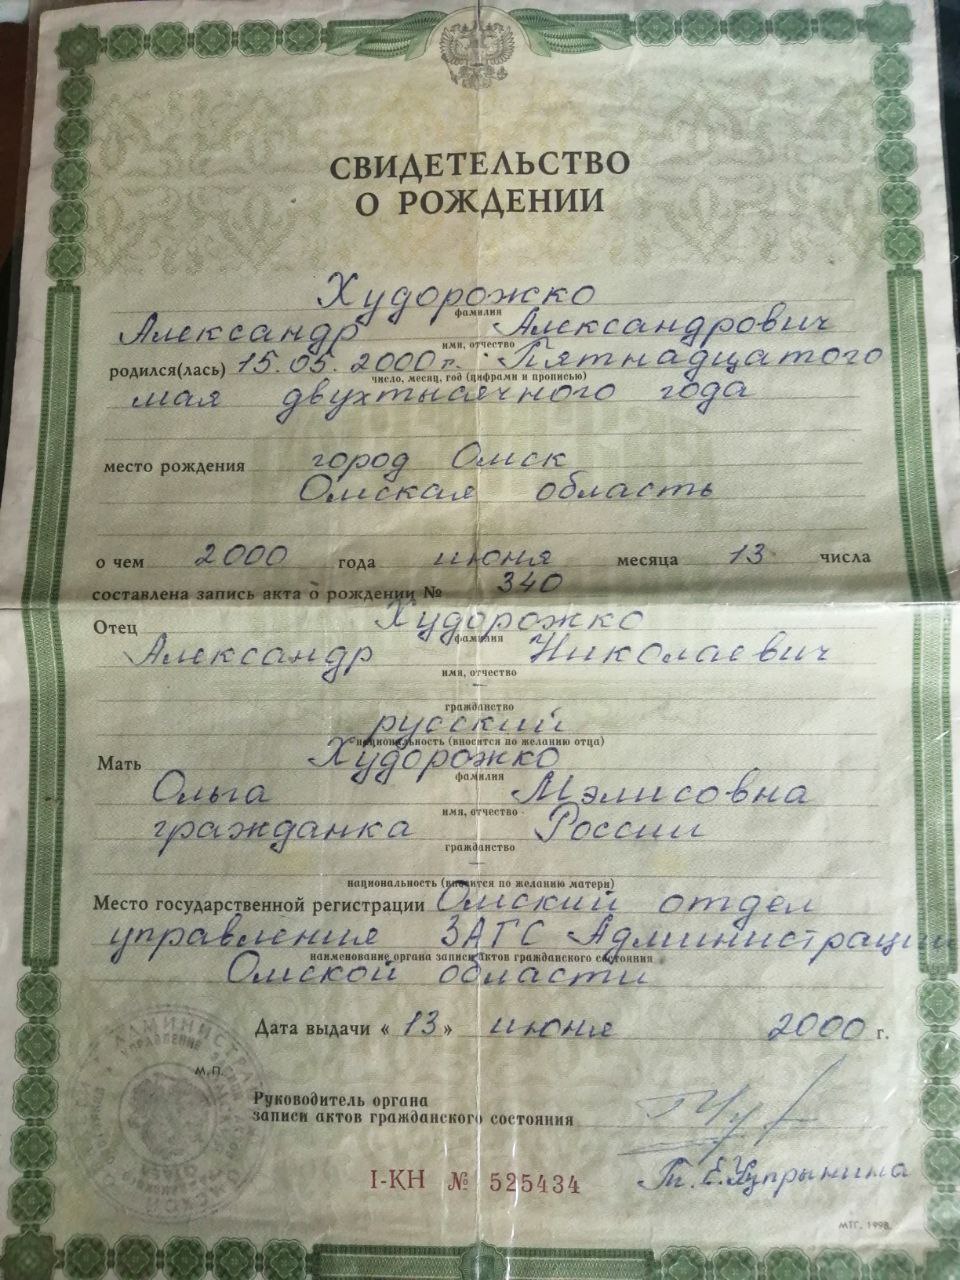 СВИДЕТЕЛЬСТВО
О РОЖДЕНИИ
Худорожко
фамилия
Александр Александрович
имя, отчество
родился(лась) 15.05.2000 г. Пятнадцатого
число, месяц, год (цифрами и прописью)
мая двухтысячного года
место рождения город Омск
Омская область
о чем 2000 года июня месяца 13 числа
составлена запись акта о рождении № 340
Отец Худорожко
фамилия
Александр Николаевич
имя, отчество
—
гражданство
русский
национальность (вносится по желанию отца)
Мать Худорожко
фамилия
Ольга Мэлисовна
имя, отчество
гражданка России
гражданство
—
национальность (вносится по желанию матери)
Место государственной регистрации Омский отдел
управления ЗАГС Администрации
наименование органа записи актов гражданского состояния
Омской области
Дата выдачи « 13 » июня 2000 г.
М.П.
Руководитель органа
записи актов гражданского состояния
I-КН № 525434
МТГ. 1998.